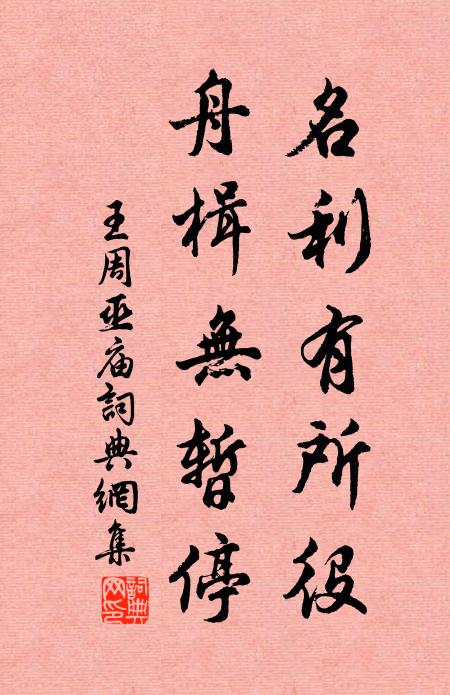 名利有所役
舟楫無暫停
王周巫庙詞典網集
詞典网印